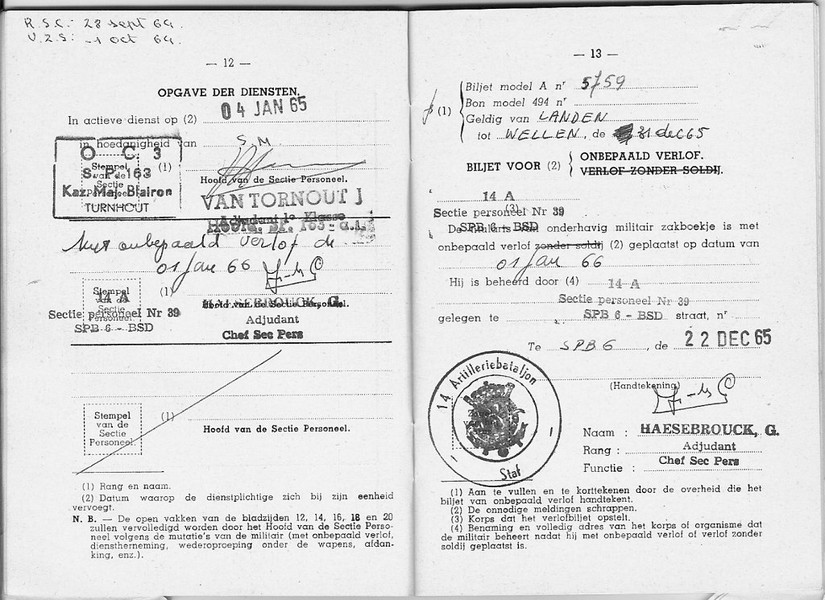 R.S.C.- 28 sept 64.
U.Z.S: -1 oct 64.
— 12 —
OPGAVE DER DIENSTEN.
In actieve dienst op (2) 04 JAN 65
in hoedanigheid van S.M
O C. 3
S. P. 163
Kaz. Maj. Blairon
TURNHOUT
Stempel van de Sectie
(1)
Hoofd van de Sectie Personeel.
VAN TORNOUT J
Adjudant 1e Klasse
Met onbepaald verlof de
01 Jan 66
Stempel
14 A
Sectie personeel Nr 39
SPB 6 - BSD
(1)
Hoofd van de Sectie Personeel.
HAESEBROUCK, G.
Adjudant
Chef Sec Pers
Stempel
van de
Sectie
Personeel
(1)
Hoofd van de Sectie Personeel.
(1) Rang en naam.
(2) Datum waarop de dienstplichtige zich bij zijn eenheid
vervoegt.
N. B. — De open vakken van de bladzijden 12, 14, 16, 18 en 20
zullen vervolledigd worden door het Hoofd van de Sectie Perso-
neel volgens de mutatie's van de militair (met onbepaald verlof,
dienstherneming, wederoproeping onder de wapens, afdan-
king, enz.).
— 13 —
(1)
Biljet model A nr 5759
Bon model 494 nr
Geldig van LANDEN
tot WELLEN, de 31 dec 65
BILJET VOOR (2)
ONBEPAALD VERLOF.
VERLOF ZONDER SOLDIJ.
14 A
(3)
Sectie personeel Nr 39
SPB 6 - BSD
De militair onderhavig militair zakboekje is met
onbepaald verlof zonder soldij (2) geplaatst op datum van
01 Jan 66
Hij is beheerd door (4) 14 A
Sectie personeel Nr 39
gelegen te SPB 6 - BSD straat, nr
Te SPB 6, de 22 DEC 65
14 Artilleriebataljon
Staf
(Handtekening)
Naam : HAESEBROUCK, G.
Rang : Adjudant
Functie : Chef Sec Pers
(1) Aan te vullen en te korttekenen door de overheid die het
biljet van onbepaald verlof handtekent.
(2) De onnodige meldingen schrappen.
(3) Korps dat het verlofbiljet opstelt.
(4) Benaming en volledig adres van het korps of organisme dat
de militair beheert nadat hij met onbepaald verlof of verlof zonder
soldij geplaatst is.